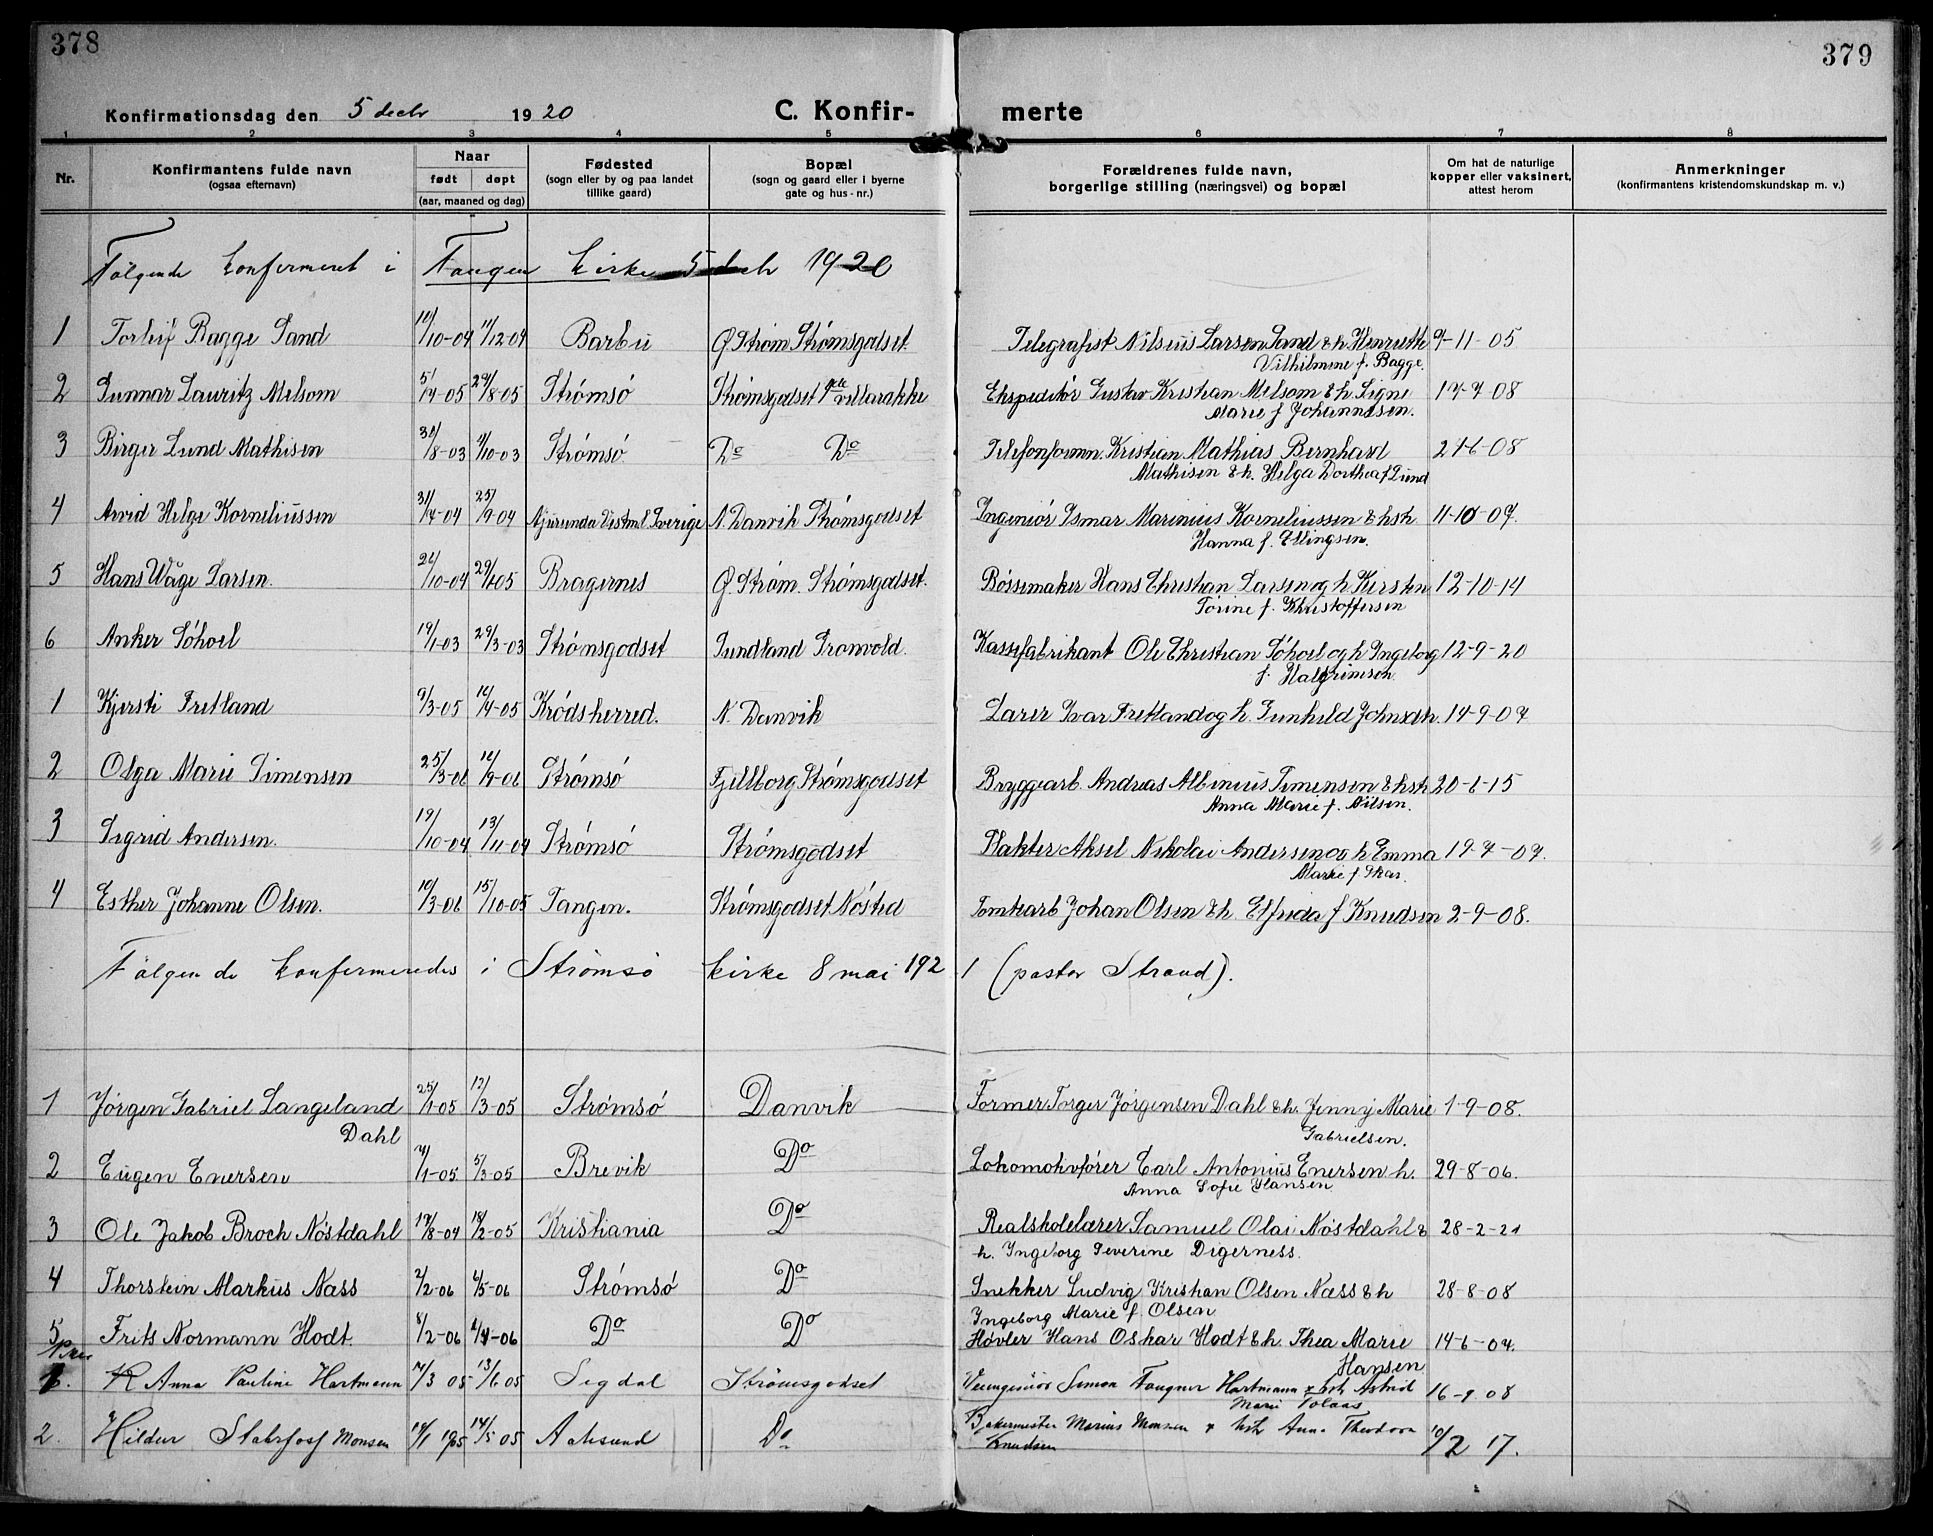 378
379
Konfirmationsdag den 5 decbr 1920 C. Konfir- merte
1 2 3 4 5 6 7 8
Nr. Konfirmantens fulde navn (ogsaa efternavn) Naar født døpt (aar, maaned og dag) Fødested (sogn eller by og paa landet tillike gaard) Bopæl (sogn og gaard eller i byerne gate og hus-nr.) Forældrenes fulde navn, borgerlige stilling (næringsvei) og bopæl Om hat de naturlige kopper eller vaksinert, attest herom Anmerkninger (konfirmantens kristendomskundskap m. v.)
Følgende konfirmeret i Tangen kirke 5 decbr 1920
1 Torleif Bagge Sand /10-04 11/12-04 Barbu Ø. Strøm Strømsgodset Telegrafist Nilsius Larsen Sand & h. Henriette 9-11-05
Vilhilmine f. Bagge.
2 Gunnar Lauritz Melsom 5/4-05 /8-05 Strømsø Strømsgodset villarakke Ekspeditør Gustav Kristian Melsom & h. Signe 17-7-08
Marie f Johannesen.
3 Birger Lund Mathisen 31/8-03 /10-03 Strømsø Do Do Telefonformn. Kristian Mathias Bernhard 24-6-08
Mathisen & h. Helga Dorthea f Lund
4 Arvid Helge Korneliussen 31/7-04 25/9-04 Njurunda Vestnl. Sverige N. Danvik Strømsgodset Ingeniør Ismar Marinius Korneliussen & hst 11-10-07.
Hanna f. Ellingsen.
5 Hans Wåge Larsen. /10-04 29/1-05 Bragernes Ø. Strøm. Strømsgodset. Bøssemaker Hans Christian Larsen og h. Kirstin 12-10-14
Torine f. Khristoffersen
6 Anker Søhoel 19/1-03 29/3-03 Strømsgodset Sundland Grønvold. Kassefabrikant Ole Christian Søhoel og h Ingeborg 12-9-20
f. Halgrimsen
1 Kjersti Fretland 9/3-05 /4-05 Krødsherred. N. Danvik Lærer Ivar Fretland og h. Gunhild Johnsdtr. 14-9-07
2 Olga Marie Simensen 25/3-06 /9-06 Strømsø Fjellborg Strømsgodset Bryggearb. Andreas Albinius Simensen & hst 20-6-15
Anna Marie f. Nilsen.
3 Sigrid Andersen. 19/10-04 13/11-04 Strømsø Strømsgodset Slakter Aksel Nikolai Andersen og h Emma 19-7-07.
Marie f. Skar.
4 Esther Johanne Olsen. 10/3-06 15/10-05 Tangen. Strømsgodset Nøsted Tomtearb Johan Olsen & h. Elfrida f Knudsen 2-9-08.
Følgende konfirmeredes i Strømsø kirke 8 mai 1921 (pastor Strand).
1 Jørgen Gabriel Langeland 25/1-05 12/3-05 Strømsø Danvik Former Torger Jørgensen Dahl & h. Jenny Marie 1-9-08.
Dahl Gabrielsen.
2 Eugen Enersen /1-05 5/3-05 Brevik Do Lokomotivfører Carl Antonius Enersen h. 29-8-06.
Anna Sofie Hansen
3 Ole Jakob Broch Nøstdahl /8-04 18/2-05 Kristiania Do Realskolelærer Samuel Olai Nøstdahl & 28-2-21
h. Ingeborg Severine Digerness.
4 Thorstein Markus Næss 2/2-06 /5-06 Strømsø Do Snekker Ludvig Kristian Olsen Næss & h 28-8-08
Ingeborg Marie f. Olsen
5 Frits Normann Hodt. 8/2-06 -06 Do Do Høvler Hans Oskar Hodt & h. Thea Marie 14-6-07.
Hansen
Piker
1. Anna Pauline Hartmann /3 05 13/6 05 Sigdal Strømsgodset Simon Fougner Hartmann & hst Astrid 16-9 08
Marie Tolaas
2. Hildur Monsen /1 1905 14/5 05 Aalesund Do Bakermester Marius Monsen & hst Anna Theodora 10/2 17.
Knudsen